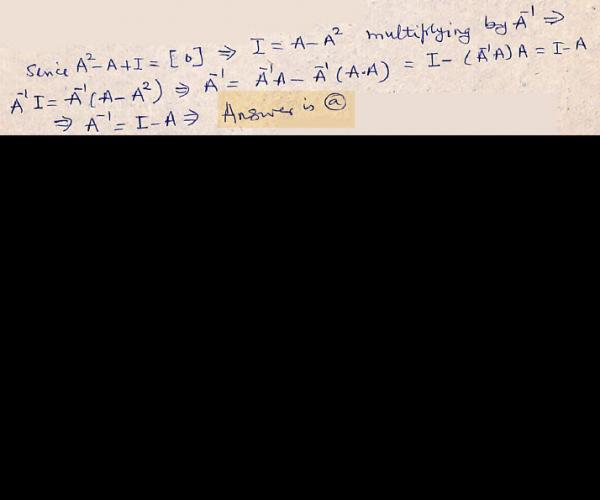 Since A² - A + I = [0] ⇒ I = A - A² multiplying by A⁻¹ ⇒
A⁻¹ I = A⁻¹(A - A²) ⇒ A⁻¹ = A⁻¹A - A⁻¹(A·A) = I - (A⁻¹A) A = I - A
⇒ A⁻¹ = I - A ⇒ Answer is ⓐ